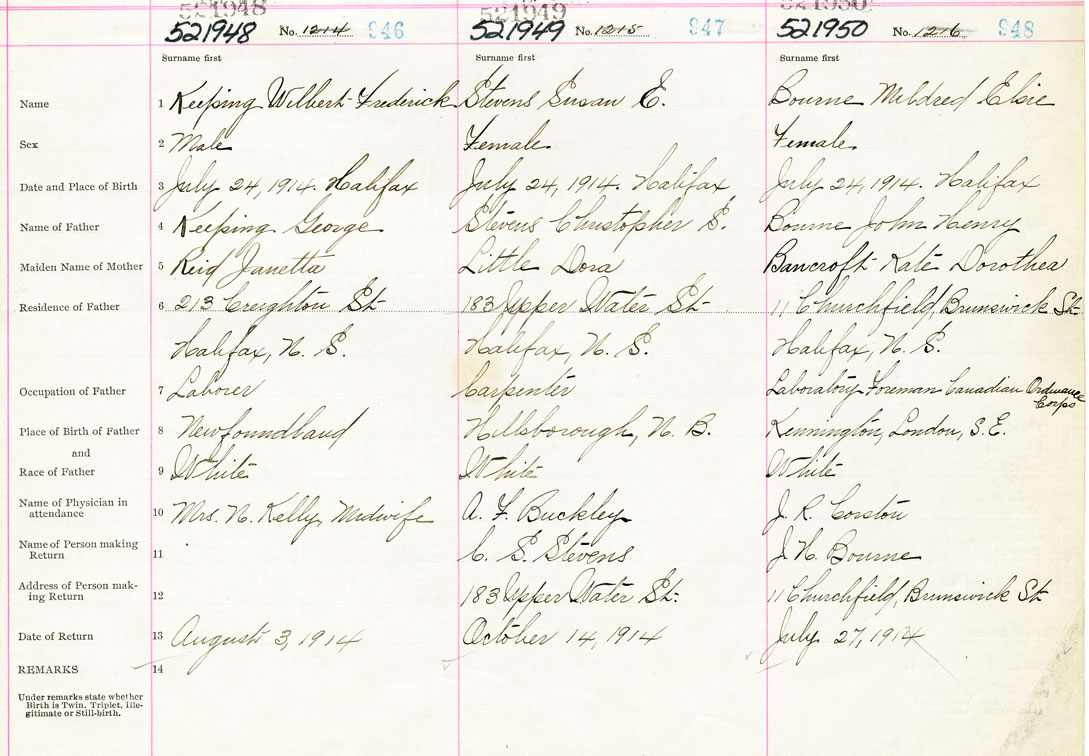 521948 521949 521950
521948 No. 1214 946 521949 No. 1215 947 521950 No. 1216 948
Surname first Surname first Surname first
Name 1 Keeping Wilbert Frederick Stevens Susan E. Bourne Mildred Elsie
Sex 2 Male Female Female
Date and Place of Birth 3 July 24, 1914. Halifax July 24, 1914. Halifax July 24, 1914. Halifax
Name of Father 4 Keeping George Stevens Christopher S. Bourne John Henry
Maiden Name of Mother 5 Reid Janetta Little Dora Bancroft Kate Dorothea
Residence of Father 6 213 Creighton St 183 Upper Water St 11 Churchfield, Brunswick St
Halifax, N. S. Halifax, N. S. Halifax, N. S.
Occupation of Father 7 Laborer Carpenter Laboratory Foreman Canadian Ordnance Corps
Place of Birth of Father 8 Newfoundland Hillsborough, N. B. Kennington, London, S.E.
and
Race of Father 9 White White White
Name of Physician in attendance 10 Mrs. N. Kelly, Midwife A. F. Buckley J. R. Corston
Name of Person making Return 11 C. S. Stevens J. H. Bourne
Address of Person making Return 12 183 Upper Water St. 11 Churchfield, Brunswick St
Date of Return 13 August 3, 1914 October 14, 1914 July 27, 1914
REMARKS 14
Under remarks state whether
Birth is Twin, Triplet, Ille-
gitimate or Still-birth.